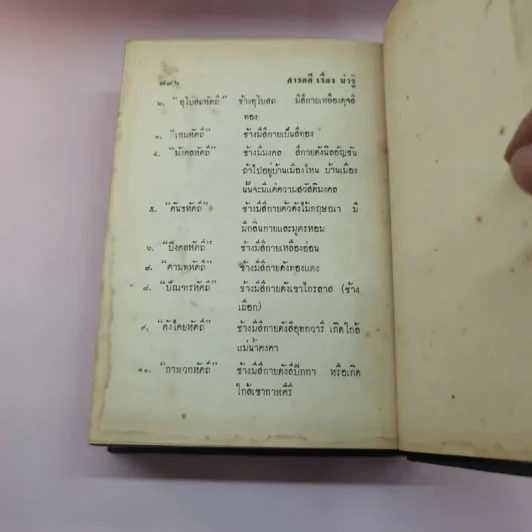 ๗๙๒ สารคดี เรื่อง น่ารู้
๒. “อุโบสถหัตถี” ช้างอุโบสถ มีสีกายเหลืองดุจสี
ทอง
๓. “เหมหัตถี” ช้างมีสีกายเป็นสีทอง
๔. “มังคลหัตถี” ช้างมีมงคล สีกายดังนิลอัญชัน
ถ้าไปอยู่บ้านเมืองไหน บ้านเมือง
นั้นจะมีแต่ความสวัสดิมงคล
๕. “คันธหัตถี” ช้างมีสีกายตัวดังไม้กฤษณา มี
มีกลิ่นกายและมูตรหอม
๖. “ปิงคลหัตถี” ช้างมีสีกายเหลืองอ่อน
๗. “ตามพหัตถี” ช้างมีสีกายดังทองแดง
๘. “บัณฑรหัตถี” ช้างมีสีกายดังเขาไกรลาส (ช้าง
เผือก)
๙. “คังไคยหัตถี” ช้างมีสีกายดังสีอุทกวารี เกิดใกล้
แม่น้ำคงคา
๑๐. “กาฬวกหัตถี” ช้างมีสีกายดังสีปีกกา หรือเกิด
ใกล้เขากาฬคีรี